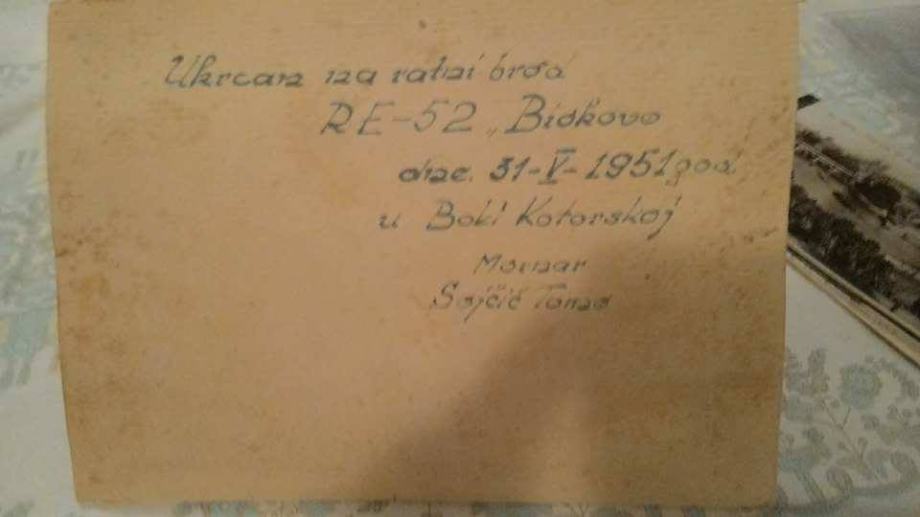 Ukrcan na ratni brod
RE-52 „Biokovo
dne. 31-V-1951 god.
u Boki Kotorskoj
Mornar
Sojčić Tomo